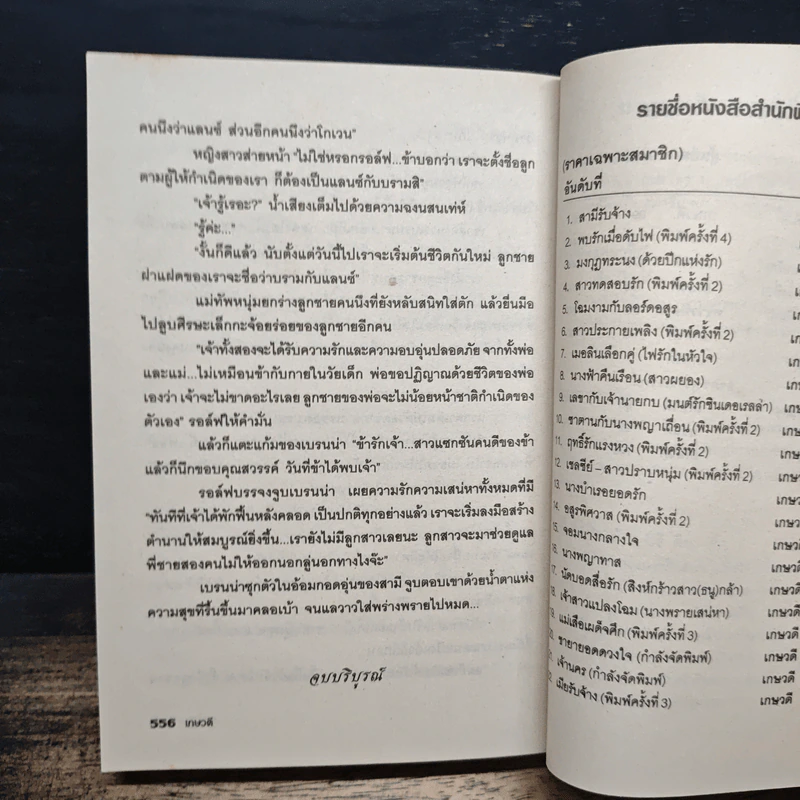 คนนึงว่าแลนซ์ ส่วนอีกคนนึงว่าโกเวน"
หญิงสาวส่ายหน้า "ไม่ใช่หรอกรอล์ฟ...ข้าบอกว่า เราจะตั้งชื่อลูก
ตามผู้ให้กำเนิดของเรา ก็ต้องเป็นแลนซ์กับบรามสิ"
"เจ้ารู้เรอะ?" น้ำเสียงเต็มไปด้วยความฉงนสนเท่ห์
"รู้ค่ะ..."
"งั้นก็ดีแล้ว นับตั้งแต่วันนี้ไปเราจะเริ่มต้นชีวิตกันใหม่ ลูกชาย
ฝาแฝดของเราจะชื่อว่าบรามกับแลนซ์"
แม่ทัพหนุ่มยกร่างลูกชายคนนึงที่ยังหลับสนิทใส่ตัก แล้วยื่นมือ
ไปลูบศีรษะเล็กกะจ้อยร่อยของลูกชายอีกคน
"เจ้าทั้งสองจะได้รับความรักและความอบอุ่นปลอดภัย จากทั้งพ่อ
และแม่...ไม่เหมือนข้ากับกายในวัยเด็ก พ่อขอปฏิญาณด้วยชีวิตของพ่อ
เองว่า เจ้าจะไม่ขาดอะไรเลย ลูกชายของพ่อจะไม่น้อยหน้าชาติกำเนิดของ
ตัวเอง" รอล์ฟให้คำมั่น
แล้วก็แตะแก้มของเบรนน่า "ข้ารักเจ้า...สาวแซกซันคนดีของข้า
แล้วก็นึกขอบคุณสวรรค์ วันที่ข้าได้พบเจ้า"
รอล์ฟบรรจงจูบเบรนน่า เผยความรักความเสน่หาทั้งหมดที่มี
"ทันทีที่เจ้าได้พักฟื้นหลังคลอด เป็นปกติทุกอย่างแล้ว เราจะเริ่มลงมือสร้าง
ตำนานให้สมบูรณ์ยิ่งขึ้น...เรายังไม่มีลูกสาวเลยนะ ลูกสาวจะมาช่วยดูแล
พี่ชายสองคนไม่ให้ออกนอกลู่นอกทางไงจ๊ะ"
เบรนน่าซุกตัวในอ้อมกอดอุ่นของสามี จูบตอบเขาด้วยน้ำตาแห่ง
ความสุขที่รื้นขึ้นมาคลอเบ้า จนแลวาวใสพร่างพรายไปหมด...
จบบริบูรณ์
556 เกษวดี
รายชื่อหนังสือสำนัก
(ราคาเฉพาะสมาชิก)
อันดับที่
1. สามีรับจ้าง
2. พบรักเมื่อดับไฟ (พิมพ์ครั้งที่ 4)
3. มงกุฎทระนง (ด้วยปีกแห่งรัก)
4. สาวทดสอบรัก (พิมพ์ครั้งที่ 2)
5. โฉมงามกับลอร์ดอสูร
6. สาวประกายเพลิง (พิมพ์ครั้งที่ 2)
7. เมอลินเลือกคู่ (ไฟรักในหัวใจ)
8. นางฟ้าคืนเรือน (สาวผยอง)
9. เลขากับเจ้านายกบ (มนต์รักซินเดอเรลล่า)
10. ซาตานกับนางพญาเถื่อน (พิมพ์ครั้งที่ 2)
11. ฤทธิ์รักแรงหวง (พิมพ์ครั้งที่ 2)
12. เชลซีย์ – สาวปราบหนุ่ม (พิมพ์ครั้งที่ 2)
13. นางบำเรอยอดรัก เกษ
14. อสูรพิศวาส (พิมพ์ครั้งที่ 2) เกษ
15. จอมนางกลางใจ เกษว
16. นางพญาทาส เกษว
17. นัดบอดสื่อรัก (สิงห์กร้าวสาว(ธนู)กล้า) เกษวดี
18. เจ้าสาวแปลงโฉม (นางพรายเสน่หา) เกษวดี
19. แม่เสือเผด็จศึก (พิมพ์ครั้งที่ 3) เกษวดี
ชายายอดดวงใจ (กำลังจัดพิมพ์) เกษวดี
เจ้านคร (กำลังจัดพิมพ์) เกษวดี
เมียรับจ้าง (พิมพ์ครั้งที่ 3) เกษวดี